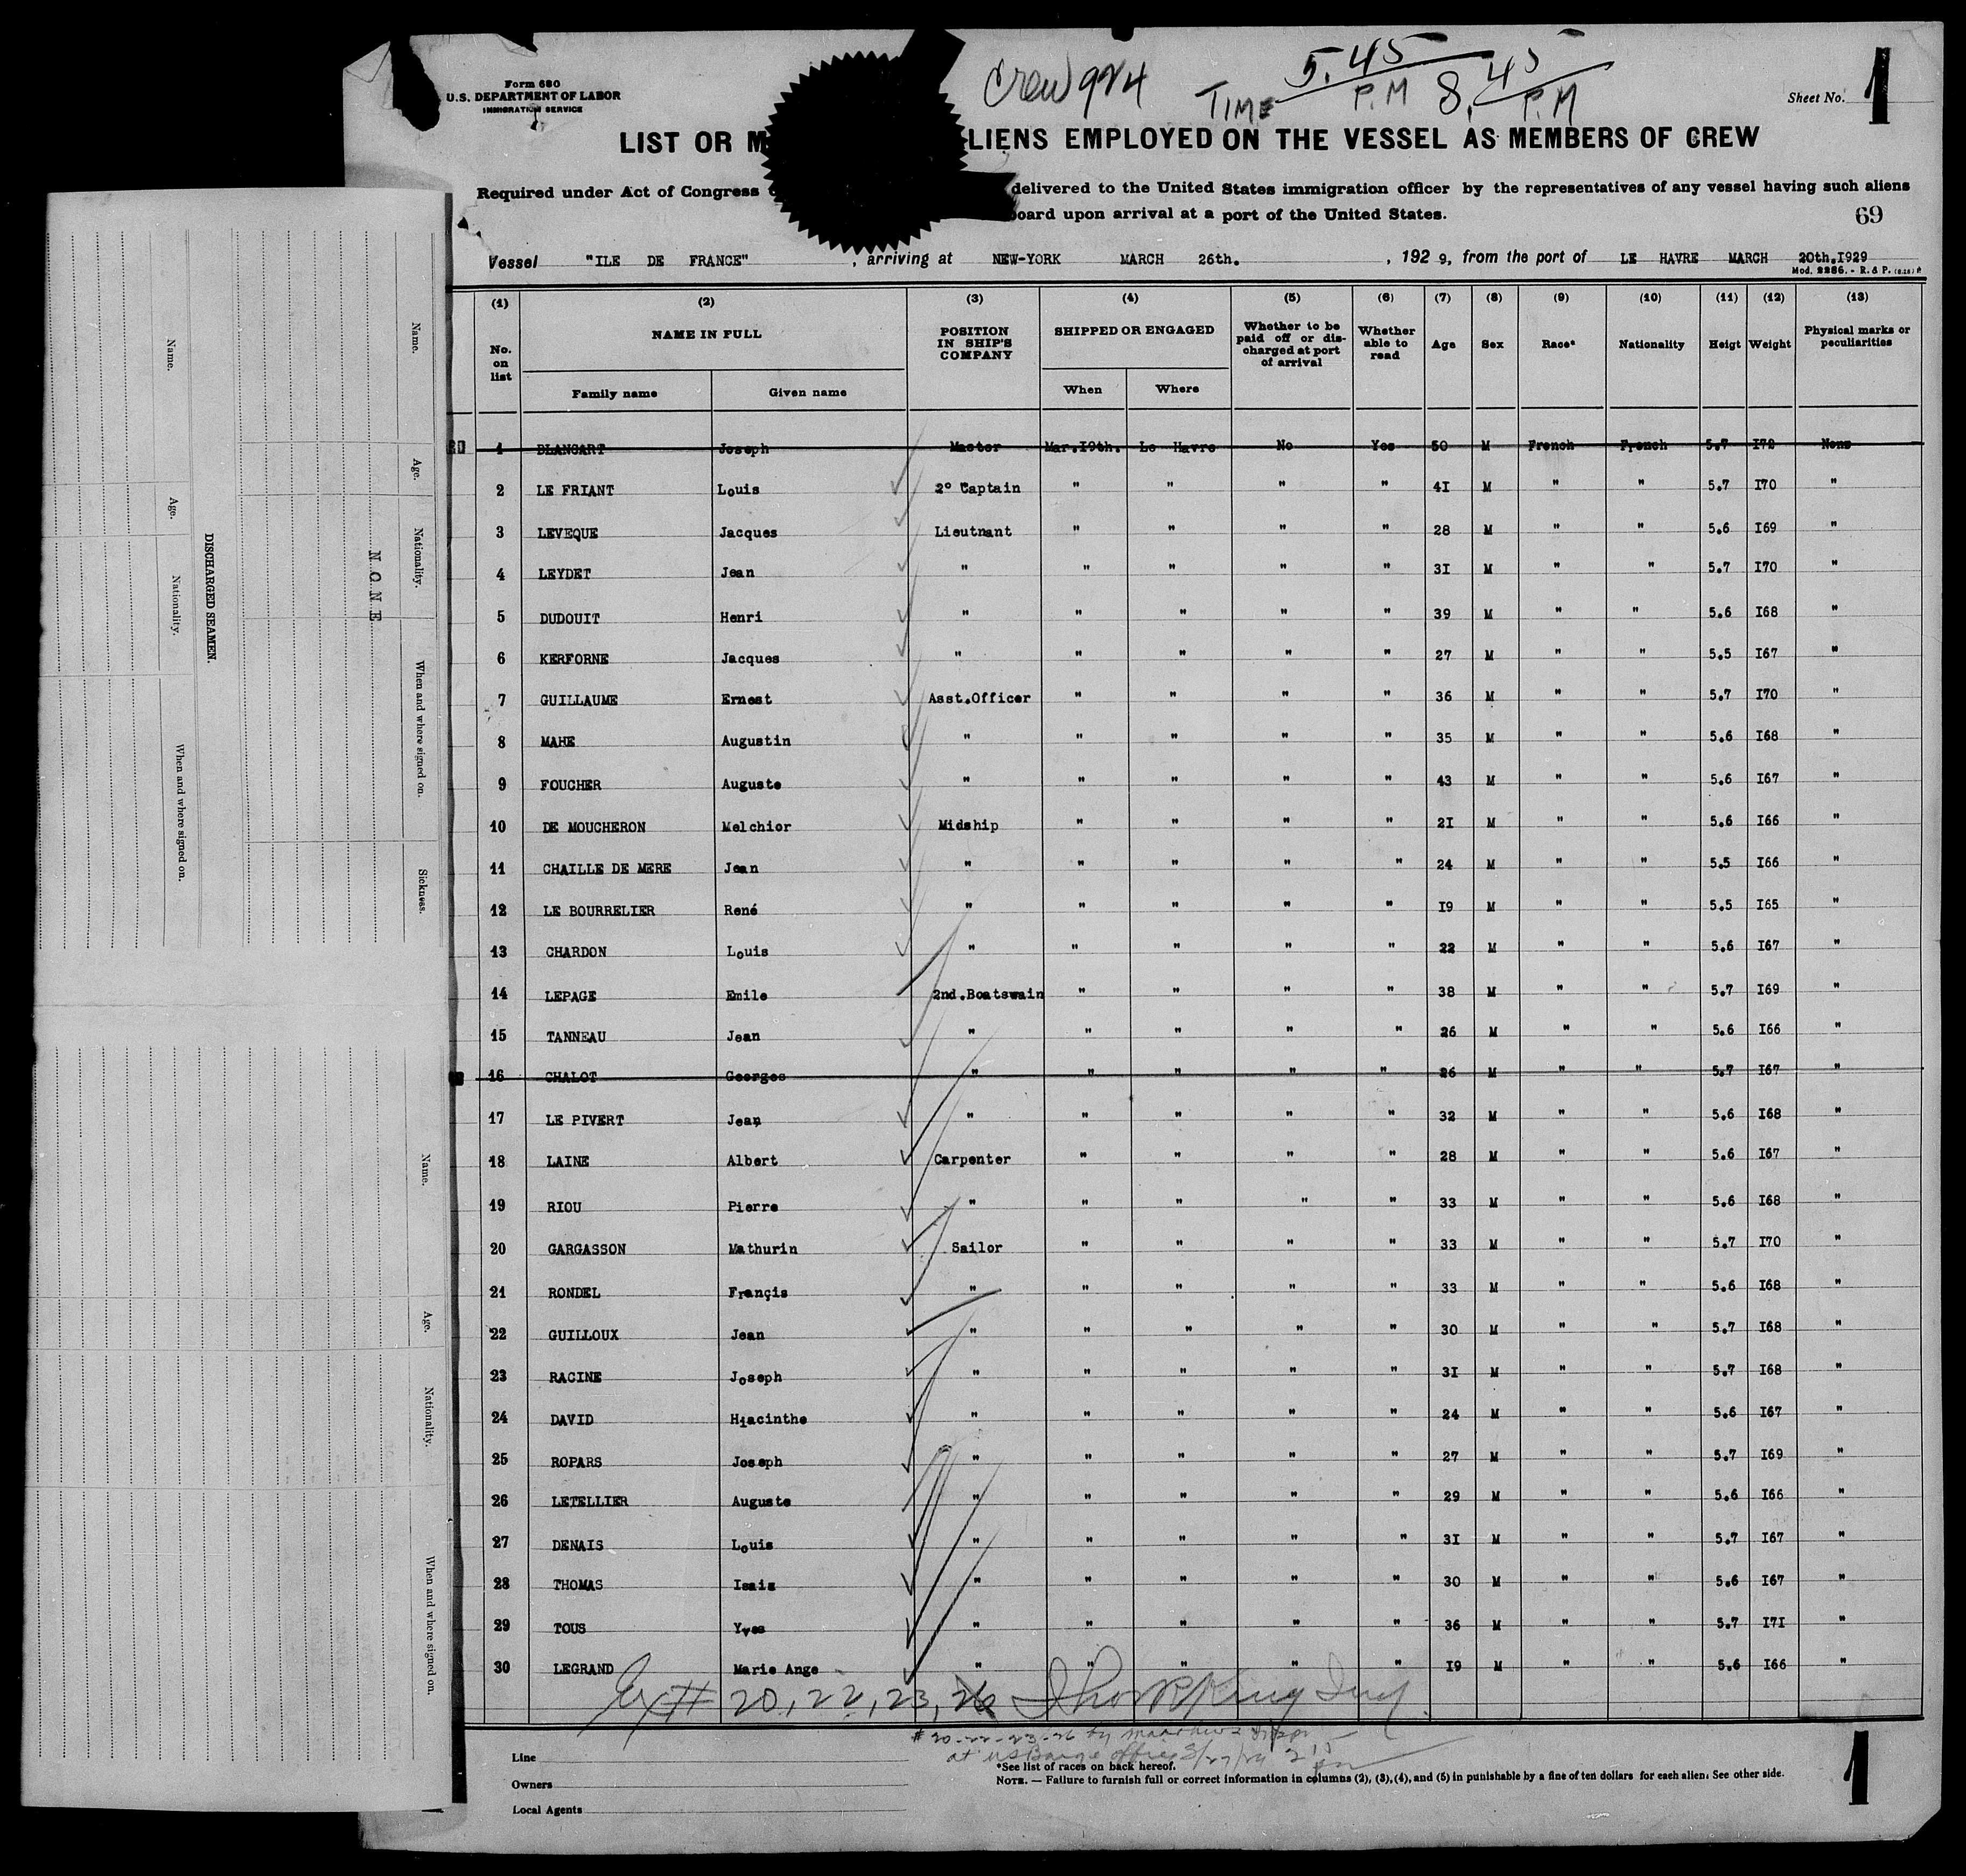 Form 680
U.S. DEPARTMENT OF LABOR
IMMIGRATION SERVICE
Crew 924
TIME 5.45 P.M 8.45 P.M
Sheet No. 1
LIST OR M LIENS EMPLOYED ON THE VESSEL AS MEMBERS OF CREW
Required under Act of Congress delivered to the United States immigration officer by the representatives of any vessel having such aliens
board upon arrival at a port of the United States.
69
Vessel "ILE DE FRANCE", arriving at NEW-YORK MARCH 26th. , 192 9, from the port of LE HAVRE MARCH 20th.I929
Mod. 2286. - R. & P.
(1) (2) (3) (4) (5) (6) (7) (8) (9) (10) (11) (12) (13)
No. on list NAME IN FULL Family name Given name POSITION IN SHIP'S COMPANY SHIPPED OR ENGAGED When Where Whether to be paid off or discharged at port of arrival Whether able to read Age Sex Race* Nationality Heigt Weight Physical marks or peculiarities
1 BLANCART Joseph Master Mar.I9th. Le Havre No Yes 50 M French French 5.7 I72 None
2 LE FRIANT Louis 2° Captain " " " " 4I M " " 5.7 I70 "
3 LEVEQUE Jacques Lieutnant " " " " 28 M " " 5.6 I69 "
4 LEYDET Jean " " " " " 3I M " " 5.7 I70 "
5 DUDOUIT Henri " " " " " 39 M " " 5.6 I68 "
6 KERFORNE Jacques " " " " " 27 M " " 5.5 I67 "
7 GUILLAUME Ernest Asst.Officer " " " " 36 M " " 5.7 I70 "
8 MAHE Augustin " " " " " 35 M " " 5.6 I68 "
9 FOUCHER Auguste " " " " " 43 M " " 5.6 I67 "
10 DE MOUCHERON Melchior Midship " " " " 2I M " " 5.6 I66 "
11 CHAILLE DE MERE Jean " " " " " 24 M " " 5.5 I66 "
12 LE BOURRELIER René " " " " " I9 M " " 5.5 I65 "
13 CHARDON Louis " " " " " 22 M " " 5.6 I67 "
14 LEPAGE Emile 2nd.Boatswain " " " " 38 M " " 5.7 I69 "
15 TANNEAU Jean " " " " " 26 M " " 5.6 I66 "
16 CHALOT Georges " " " " " 26 M " " 5.7 I67 "
17 LE PIVERT Jean " " " " " 32 M " " 5.6 I68 "
18 LAINE Albert Carpenter " " " " 28 M " " 5.6 I67 "
19 RIOU Pierre " " " " " 33 M " " 5.6 I68 "
20 GARGASSON Mathurin Sailor " " " " 33 M " " 5.7 I70 "
21 RONDEL Françis " " " " " 33 M " " 5.6 I68 "
22 GUILLOUX Jean " " " " " 30 M " " 5.7 I68 "
23 RACINE Joseph " " " " " 3I M " " 5.7 I68 "
24 DAVID Hiacinthe " " " " " 24 M " " 5.6 I67 "
25 ROPARS Joseph " " " " " 27 M " " 5.7 I69 "
26 LETELLIER Auguste " " " " " 29 M " " 5.6 I66 "
27 DENAIS Louis " " " " " 3I M " " 5.7 I67 "
28 THOMAS Isaie " " " " " 30 M " " 5.6 I67 "
29 TOUS Yves " " " " " 36 M " " 5.7 I7I "
30 LEGRAND Marie Ange " " " " " I9 M " " 5.6 I66 "
Ex # 20, 22, 23, 26
# 20-22-23-26 by
at US Barge office 3/27/29 2 15 pm
Line
Owners
Local Agents
*See list of races on back hereof.
NOTE. — Failure to furnish full or correct information in columns (2), (3), (4), and (5) in punishable by a fine of ten dollars for each alien: See other side.
1
Name. Age. Nationality. When and where signed on. Sickness.
N O N E
DISCHARGED SEAMEN.
Name. Age. Nationality. When and where signed on.
Name. Age. Nationality. When and where signed on.